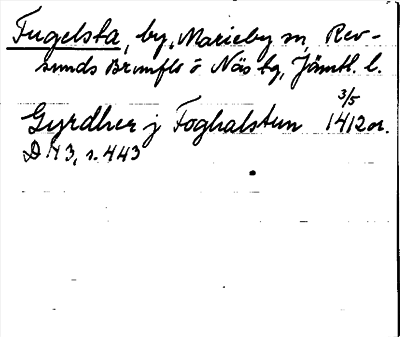 Fugelsta, by, Marieby sn, Rev-
sunds Brunflo o Näs tg, Jämtl. l.
3/5
Gyrdher j Foghalstun 1412 or.
D N 3, s. 443